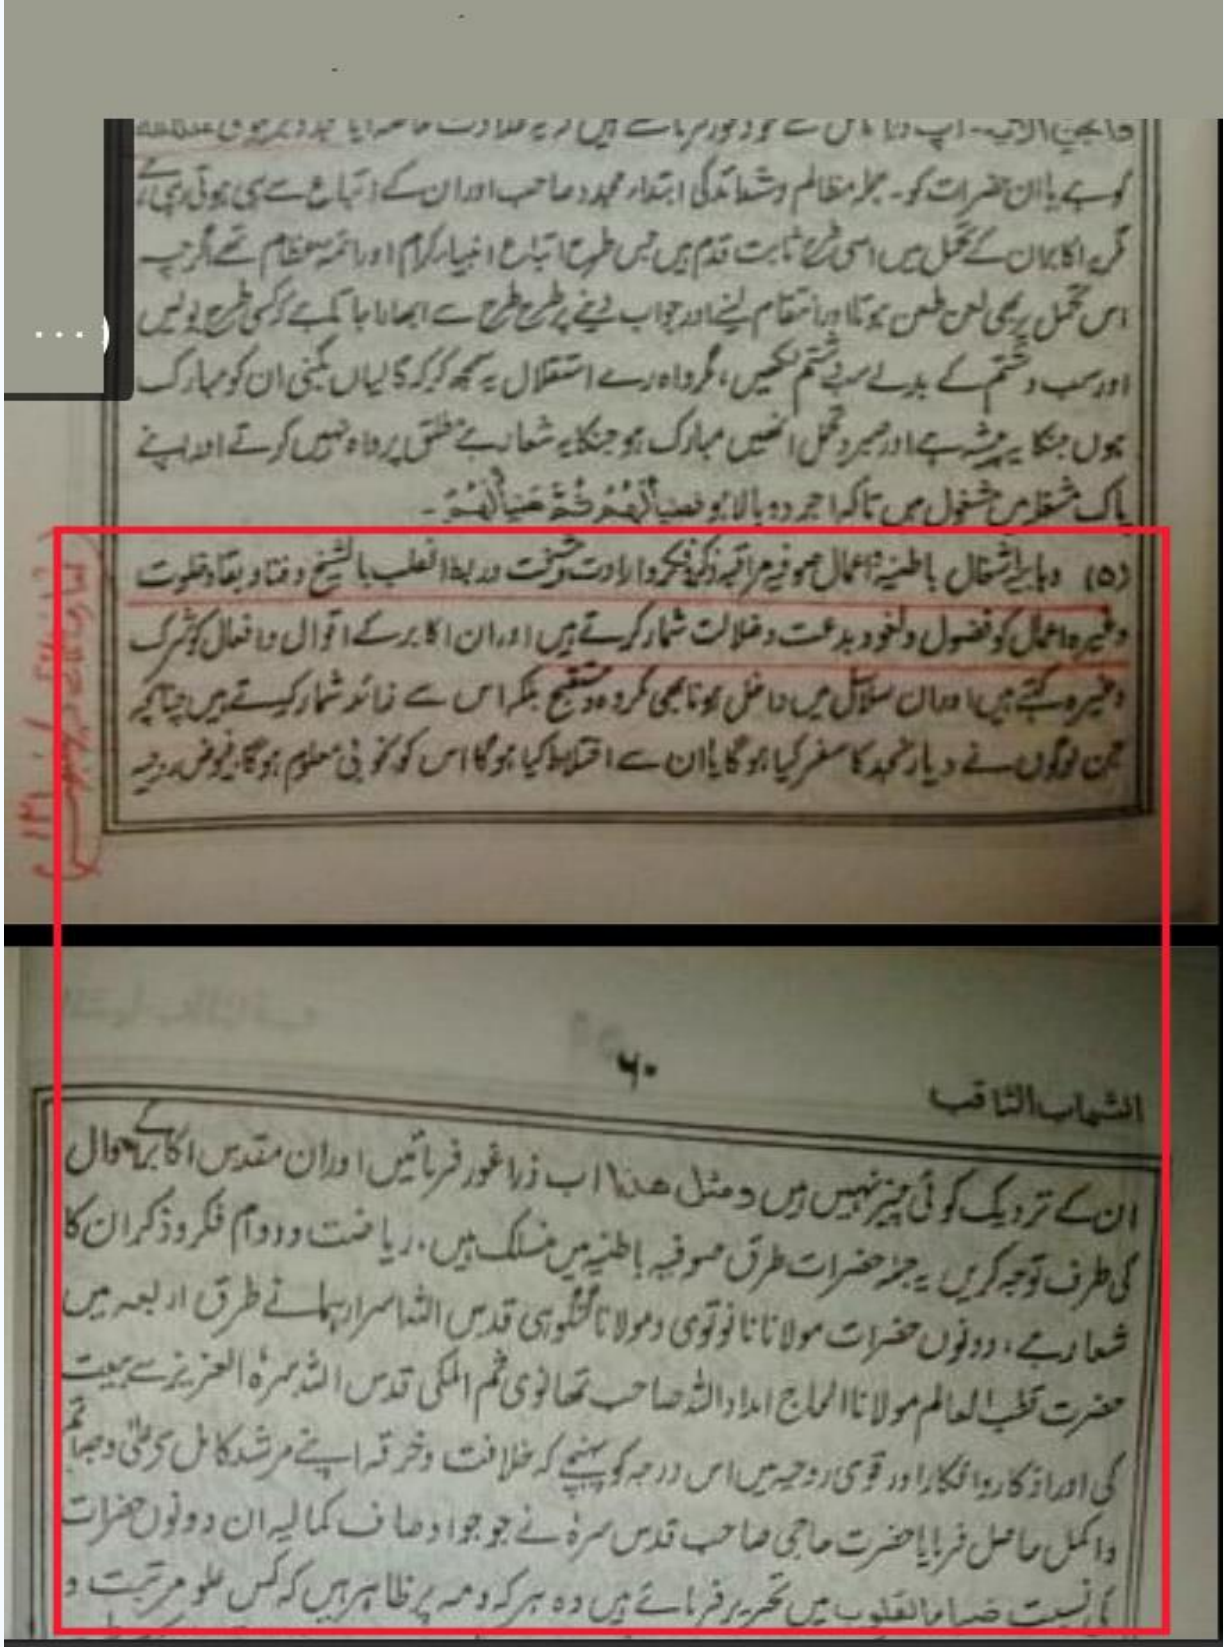 کو ہے یا ان حضرات کو۔ جملہ مظالم و شدائد کی ابتداء مجدد صاحب اور ان کے اتباع سے ہی ہوتی رہی ہے
مگر یہ اکابر ان کے تحمل میں اسی طرح ثابت قدم ہیں جس طرح اتباع انبیاء کرام اور ائمہ عظام تھے اگرچہ
اس تحمل پر بھی لعن طعن ہوتا اور انتقام لینے اور جواب دینے پر طرح طرح سے ابھارا جاتا ہے کہ کسی طرح بولیں
اور سب و شتم کے بدلے سب و شتم لکھیں، مگر واہ رے استقلال یہ سمجھ کر کہ گالیاں بکنی ان کو مبارک
ہوں جنکا یہ پیشہ ہے اور صبر و تحمل انھیں مبارک ہو جنکا یہ شعار ہے مطلق پرواہ نہیں کرتے اور اپنے
پاک مشغلہ میں مشغول ہیں تاکہ اجر دو بالا ہو فھنیأ لھم ثم ھنیأ لھم۔
(۵) وہابیہ اشغال باطنیہ و اعمال صوفیہ مراقبہ ذکر و فکر و ارادت و مشیخت و ربط القلب بالشیخ و فنا و بقا و خلوت
وغیرہ اعمال کو فضول و لغو و بدعت و ضلالت شمار کرتے ہیں اور ان اکابر کے اقوال و افعال کو شرک
وغیرہ کہتے ہیں اور ان سلاسل میں داخل ہونا بھی مکروہ و مستقبح بلکہ اس سے زائد شمار کرتے ہیں چنانچہ
جن لوگوں نے دیار نجد کا سفر کیا ہوگا یا ان سے اختلاط کیا ہوگا اس کو بخوبی معلوم ہوگا فیوض روحیہ
۶۰
الشہاب الثاقب
ان کے نزدیک کوئی چیز نہیں ہیں و مثل ھذا اب ذرا غور فرمائیں اور ان مقدس اکابر کے احوال
کی طرف توجہ کریں یہ جملہ حضرات طرق صوفیہ باطنیہ میں منسلک ہیں۔ ریاضت و دوام فکر و ذکر ان کا
شعار ہے، دونوں حضرات مولانا نانوتوی و مولانا گنگوہی قدس اللہ اسرارہما نے طرق اربعہ میں
حضرت قطب العالم مولانا الحاج امداد اللہ صاحب تھانوی ثم المکی قدس اللہ سرہ العزیز سے بیعت
کی اور اذکار و افکار اور قوی روحیہ میں اس درجہ کو پہنچے کہ خلافت و خرقہ اپنے مرشد کامل سے علی وجہ اتم
و اکمل حاصل فرمایا حضرت حاجی صاحب قدس سرہ نے جو جو اوصاف کمالیہ ان دونوں حضرات
کی نسبت ضیاء القلوب میں تحریر فرمائے ہیں وہ ہر کہ و مہ پر ظاہر ہیں کہ کس علو مرتبت و